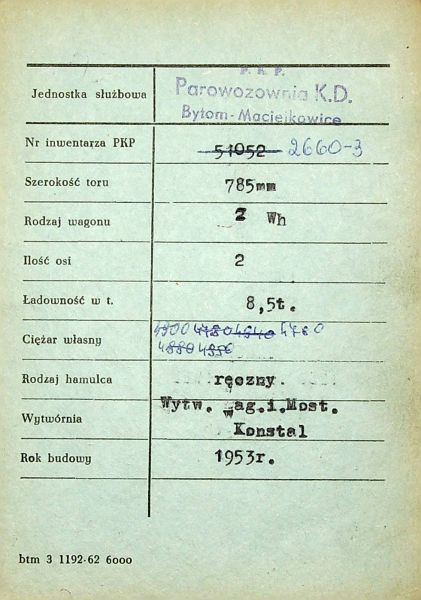 P. K. P.
Jednostka służbowa Parowozownia K.D.
Bytom-Maciejkowice
Nr inwentarza PKP 51052 2660-3
Szerokość toru 785mm
Rodzaj wagonu Wh
Ilość osi 2
Ładowność w t. 8,5t.
Ciężar własny 4780 4840 4760
4880
Rodzaj hamulca ręczny
Wytw. Wag.i.Most.
Wytwórnia Konstal
Rok budowy 1953r.
btm 3 1192-62 6000